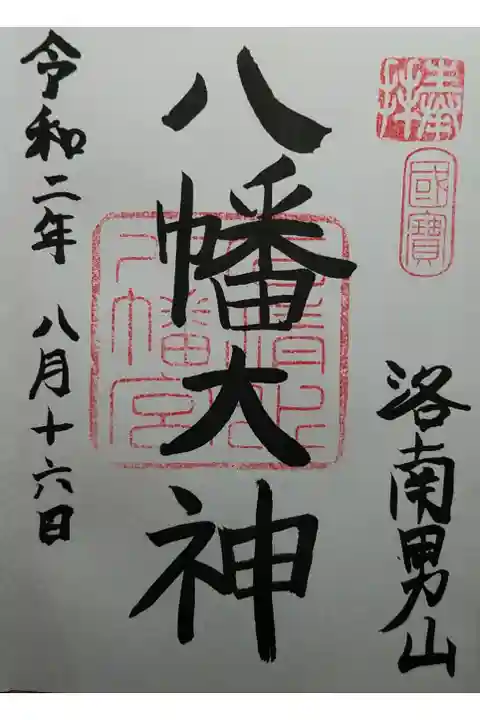 奉拝
國寶
洛南男山
八幡大神
石清水八幡宮
令和二年 八月十六日